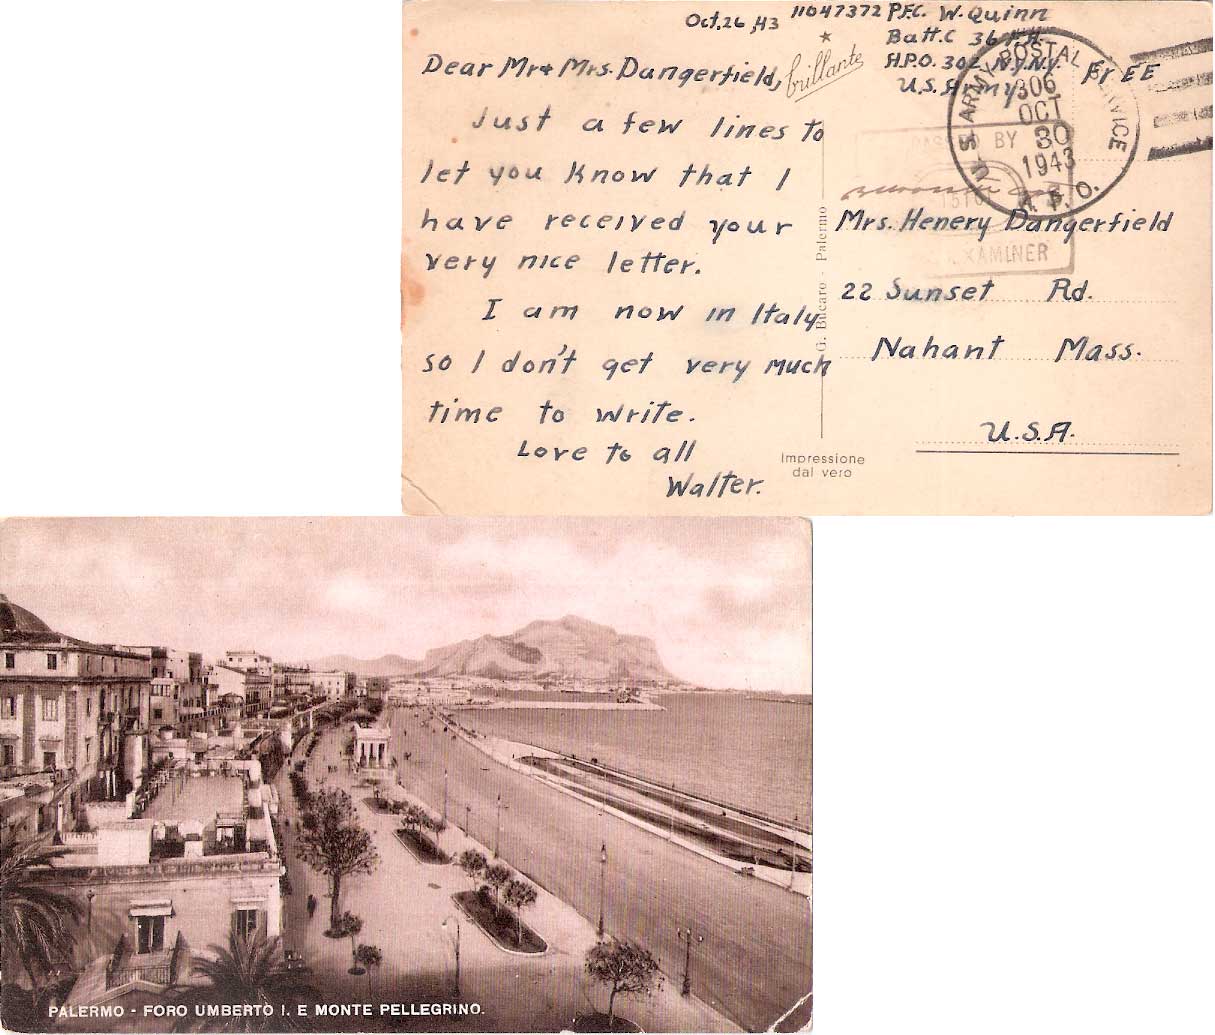 Oct. 26, 43
11047372 P.F.C. W. Quinn
Batt. C 36 F.A.
A.P.O. 302 N.Y. N.Y.
U.S. Army
Free
brillante
Dear Mr + Mrs. Dangerfield,
Just a few lines to
let you know that I
have received your
very nice letter.
I am now in Italy
so I don't get very much
time to write.
Love to all
Walter.
U.S. ARMY POSTAL SERVICE
306
OCT
30
1943
A.P.O.
PASSED BY
EXAMINER
Mrs. Henery Dangerfield
22 Sunset Rd.
Nahant Mass.
U.S.A.
G. Bucaro - Palermo
Impressione
dal vero
PALERMO - FORO UMBERTO I. E MONTE PELLEGRINO.